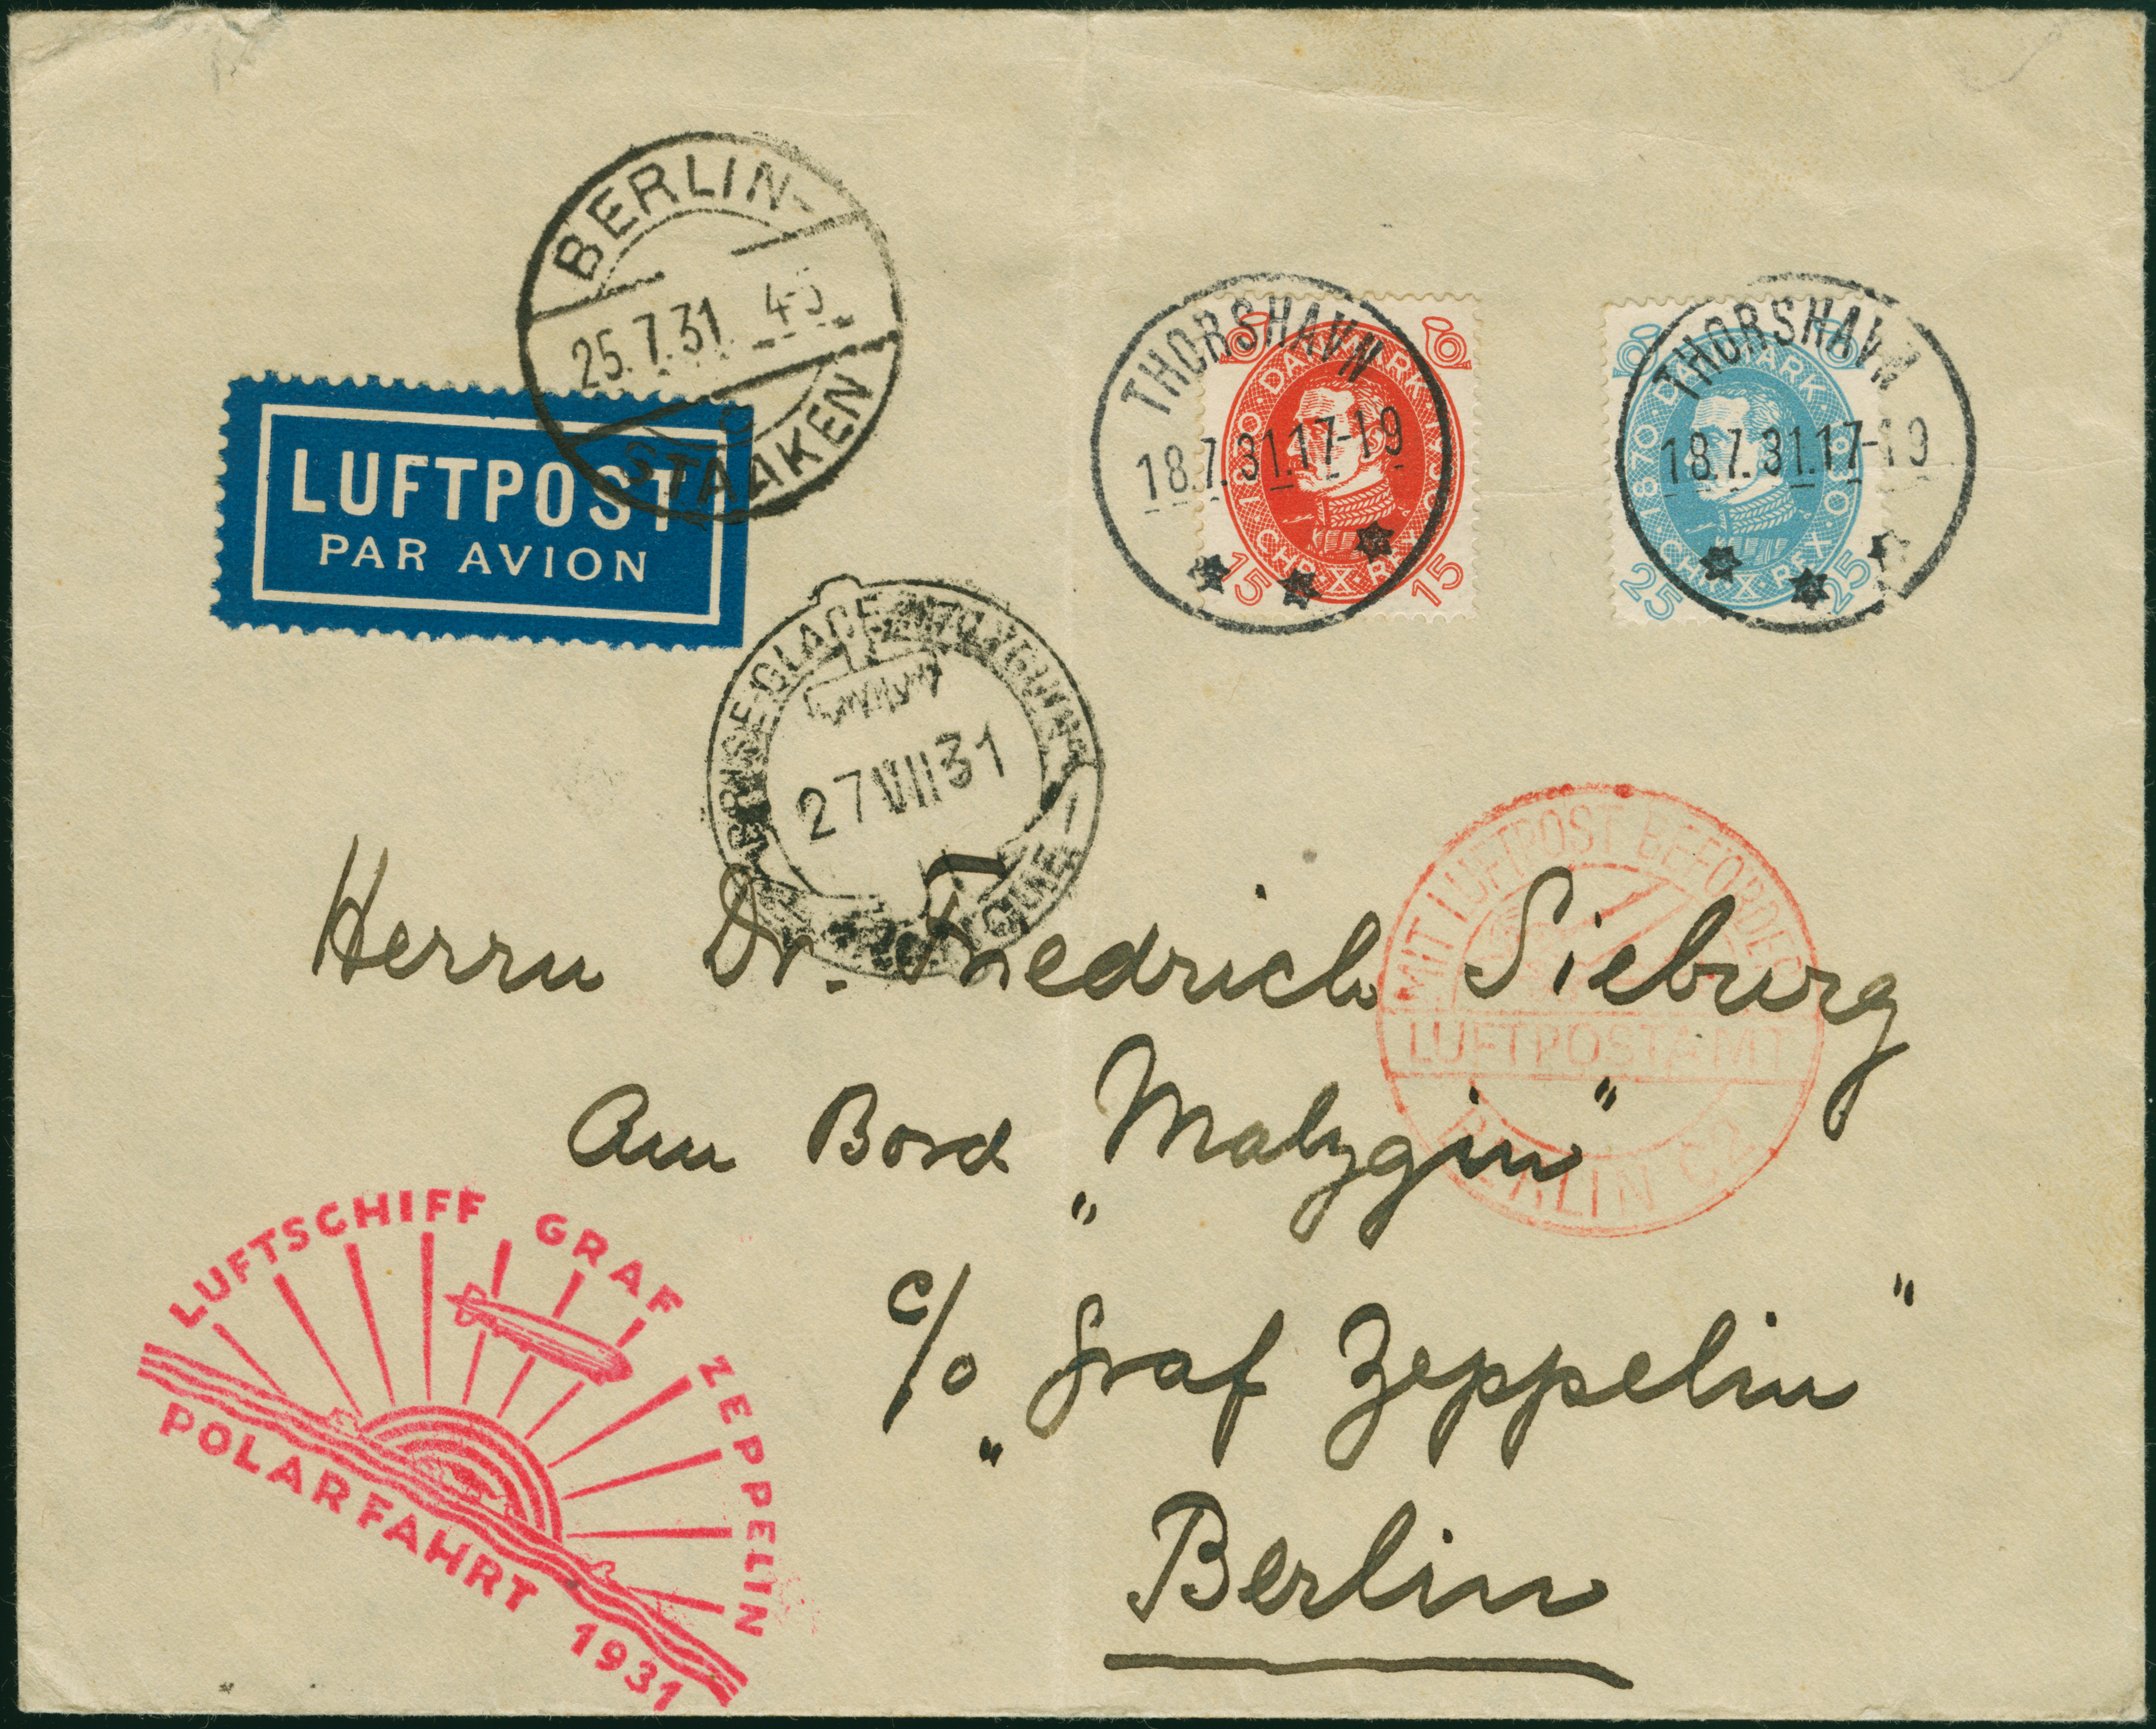 BERLIN-
25.7.31. 4-5
STAAKEN
LUFTPOST
PAR AVION
THORSHAVN
18.7.31.17-19
DANMARK
1870 1930
CHR. X. REX
15 15
THORSHAVN
18.7.31.17-19
DANMARK
1870 1930
CHR. X. REX
25 25
BRISE-GLACE
27 VII 31
MIT LUFTPOST BEFÖRDERT
LUFTPOSTAMT
BERLIN C2
Herrn Dr. Friedrich Sieburg
Am Bord „Malygin"
c/o „Graf Zeppelin"
Berlin
LUFTSCHIFF GRAF ZEPPELIN
POLARFAHRT 1931